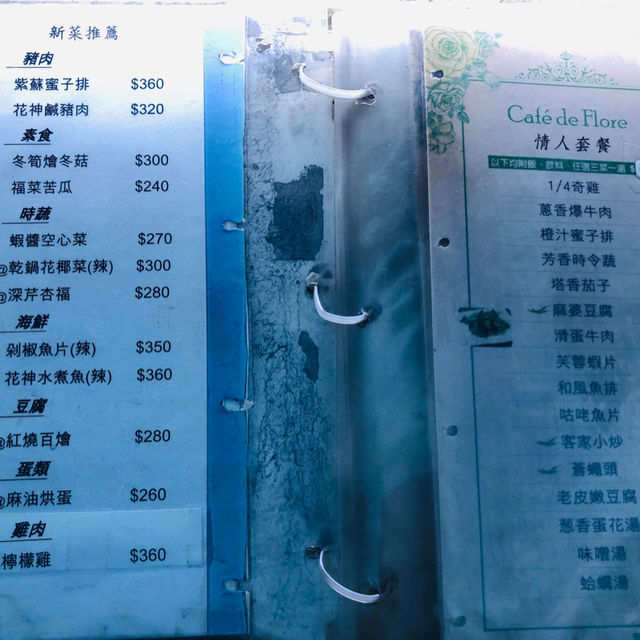 新菜推薦
豬肉
紫蘇蜜子排 $360
花神鹹豬肉 $320
素食
冬筍燴冬菇 $300
福菜苦瓜 $240
時蔬
蝦醬空心菜 $270
@乾鍋花椰菜(辣) $300
@深芹杏福 $280
海鮮
剁椒魚片(辣) $350
花神水煮魚(辣) $360
豆腐
@紅燒百燴 $280
蛋類
@麻油烘蛋 $260
雞肉
檸檬雞 $360
Café de Flore
情人套餐
以下均附飯、飲料、任選三菜一湯
1/4奇雞
蔥香爆牛肉
橙汁蜜子排
芳香時令蔬
塔香茄子
麻婆豆腐
滑蛋牛肉
芙蓉蝦片
和風魚排
咕咾魚片
客家小炒
蒼蠅頭
老皮嫩豆腐
蔥香蛋花湯
味噌湯
蛤蠣湯